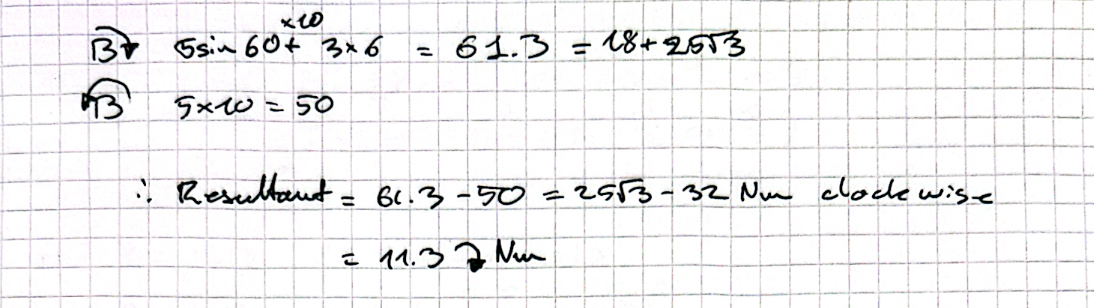 B↷ 5sin60 ×10 + 3×6 = 61.3 = 18+25√3
↶B 5×10 = 50
∴ Resultant = 61.3 - 50 = 25√3 - 32 Nm clockwise
= 11.3 ↷ Nm